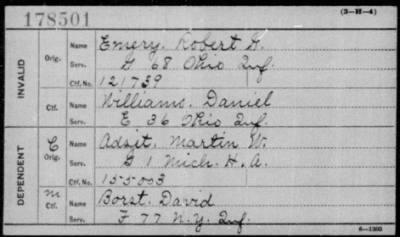 178501 (3-H-4)
INVALID
Orig. Name Emery, Robert H.
Serv. G 68 Ohio Inf.
Ctf. No. 121739
Ctf. Name Williams, Daniel
Serv. E 36 Ohio Inf.
DEPENDENT
C Orig. Name Adsit, Martin W.
Serv. G 1 Mich. H. A.
Ctf. No. 155003
m Ctf. Name Borst, David
Serv. F 77 N.Y. Inf.